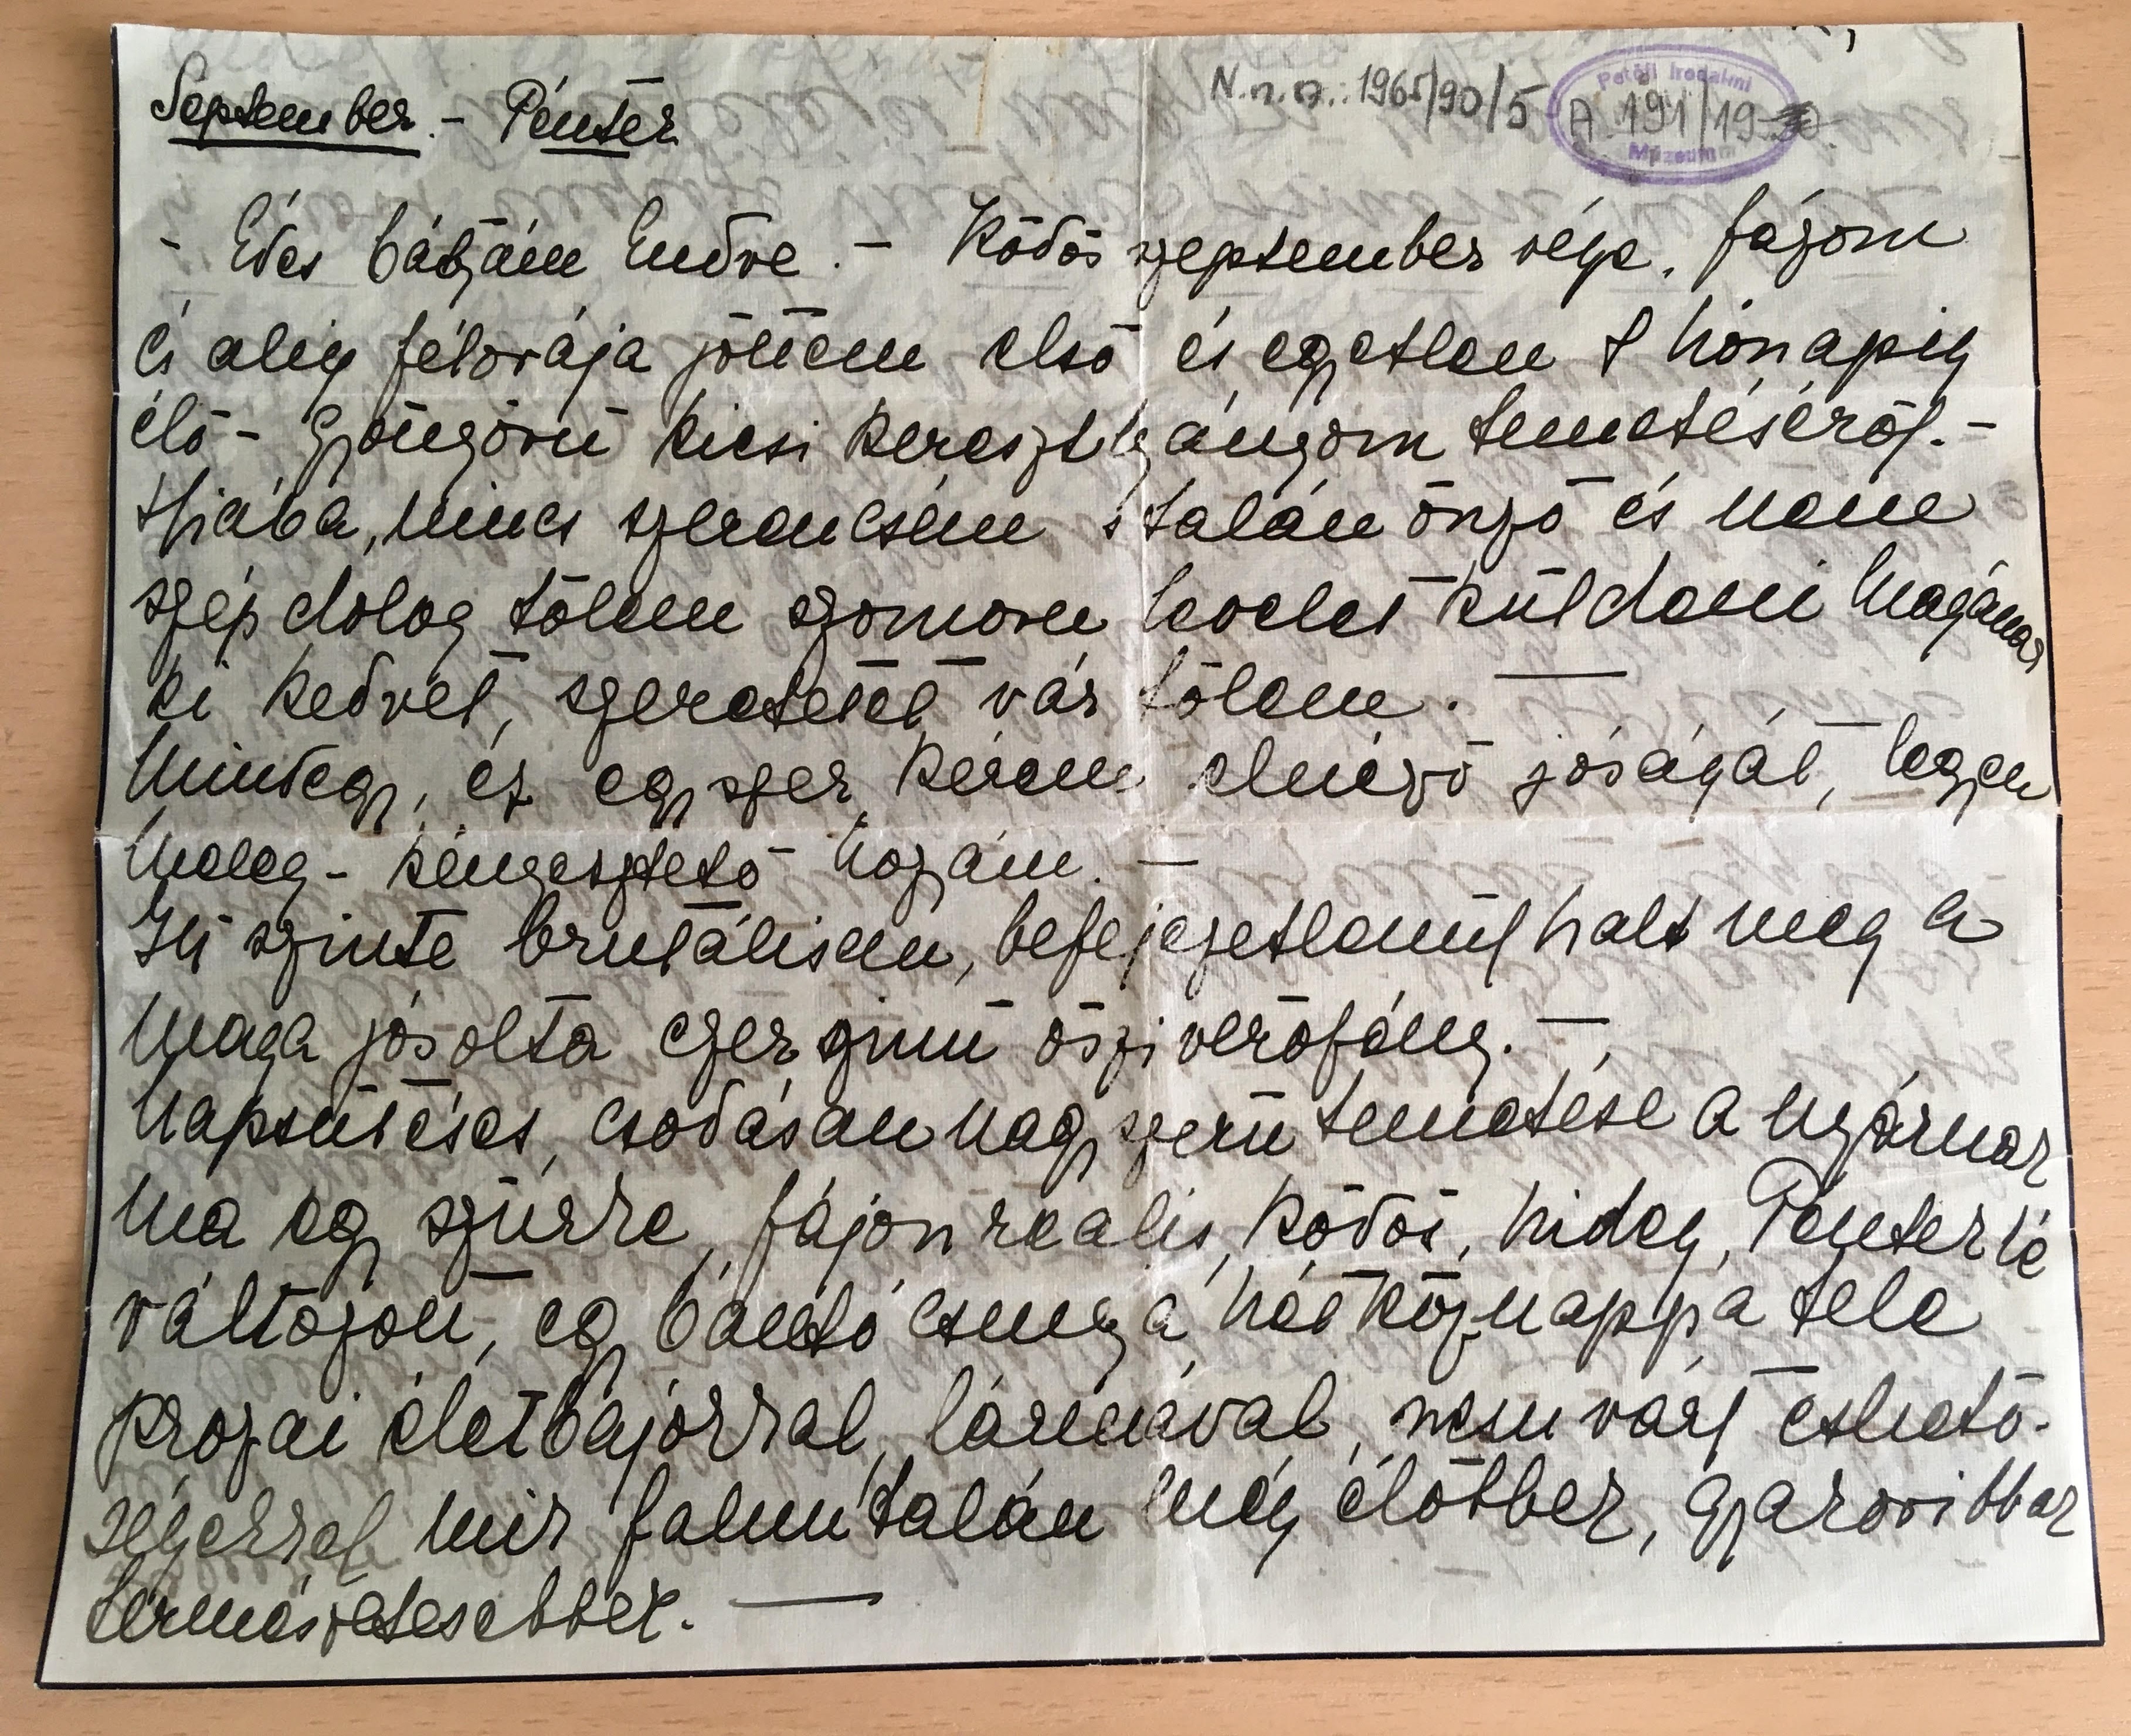 September. - Péntek
N. n. o.: 1965/90/5
Petőfi Irodalmi
A 191/19
Múzeum
- Édes bátyám Endre. - Ködös szeptember vége. fázom
és alig félórája jöttem első és egyetlen 8 hónapig
élő - gyöngyörű kicsi keresztlyányom temetéséről. -
Hiába, nincs szerencsém s talán önző és nem
szép dolog tőlem szomorú levelet küldeni Magának
ki kedvet, szeretetet vár tőlem. —
Mindegy, ez egyszer kérem elnéző jóságát, legyen
meleg - kéngesztelő hozzám. —
Itt szinte brutálisan, befejezetlenül halt meg a
maga jósolta ezer színű őszi verőfény. —
Napsütéses, csodásan nagyszerű temetése a nyárnak
ma egy szürke, fájón reális, ködös, hideg, Péntekké
változott, egy bántó csunyá hétköznappá tele
prózai életbajokkal, lármával, nem várt eshető-
ségekkel mik falun talán még élőbbek, gyakoribbak
természetesebbek. —